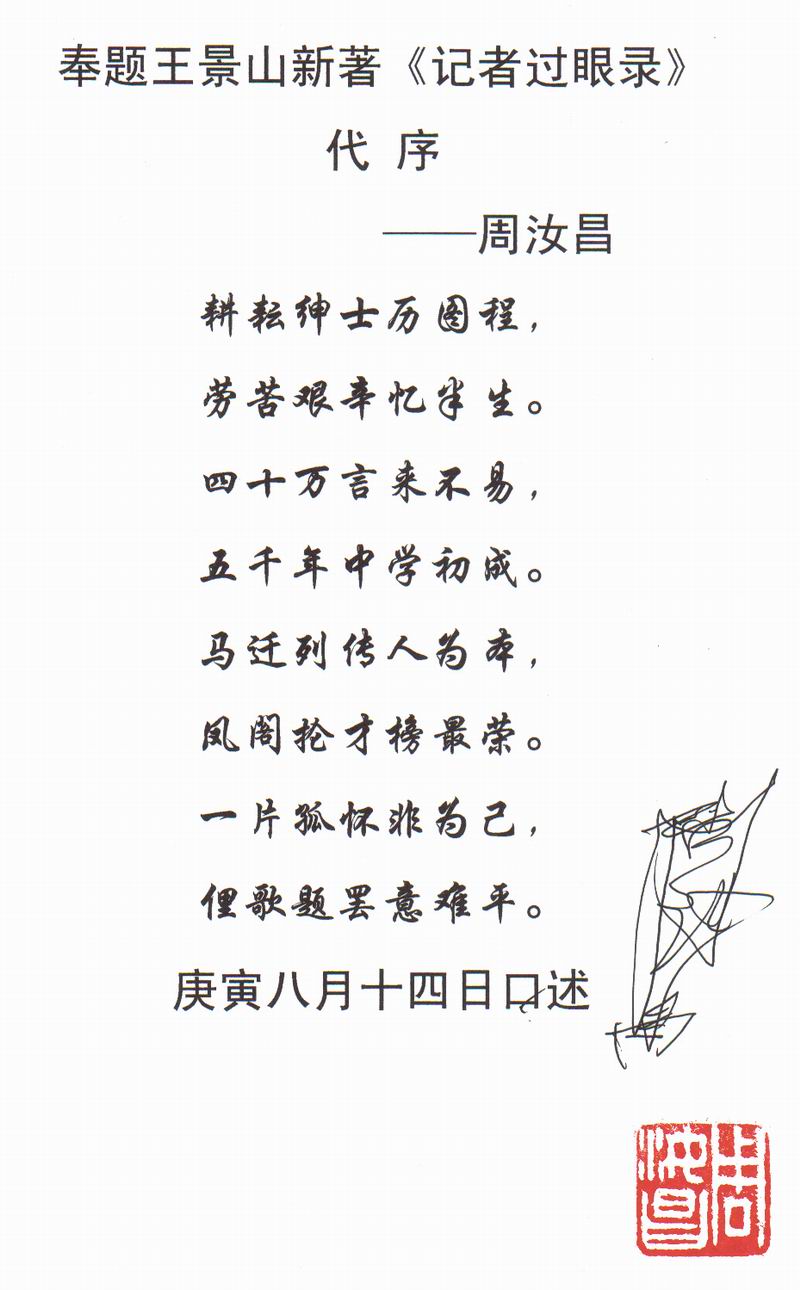 奉题王景山新著《记者过眼录》
代 序
——周汝昌
耕耘绅士历图程，
劳苦艰辛忆半生。
四十万言来不易，
五千年中学初成。
马迁列传人为本，
凤阁抡才榜最荣。
一片孤怀非为己，
俚歌题罢意难平。
庚寅八月十四日口述
周汝昌
周汝昌